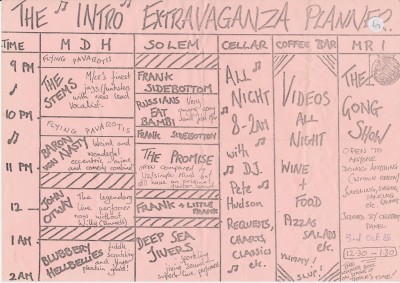 THE INTRO EXTRAVAGANZA PLANNER
TIME
MDH
SOLEM
CELLAR
COFFEE BAR
MRI
9 PM
10 PM
11 PM
12
1 AM
2AM
FLYING PAVAROTIS
THE STEMS
M/cr's finest
jazz/funksters
with new lead
vocalist.
FLYING PAVAROTIS
BARON VON NASTY
Weird and
wonderful
eccentric - mime
and comedy combined
JOHN OTWAY
The legendary
live performer
now without
Willy (Barrett)
BLUBBERY HELLBELLIES
fiddle
scratching
and knee
FRANK
SIDEBOTTOM
RUSSIANS
EAT
BAMBI
Very
FRANK SIDEBOTTOM
THE PROMISE
FRANK + LITTLE FRANK
DEEP SEA
JIVERS
sparkling
swing sound
superb live performers
ALL
NIGHT
8-2AM
with
D.J.
Pete
Hudson
REQUESTS,
CHARTS,
CLASSICS
etc.
VIDEOS
ALL
NIGHT
WINE
+
FOOD
PIZZAS
SALADS
etc.
YUMMY!
SLURP!
THE
GONG
SHOW
OPEN TO
ANYONE
DOING ANYTHING
SINGING, DANCING
JUDGED BY CELEBRITY
PANEL
12-30 - 1.30